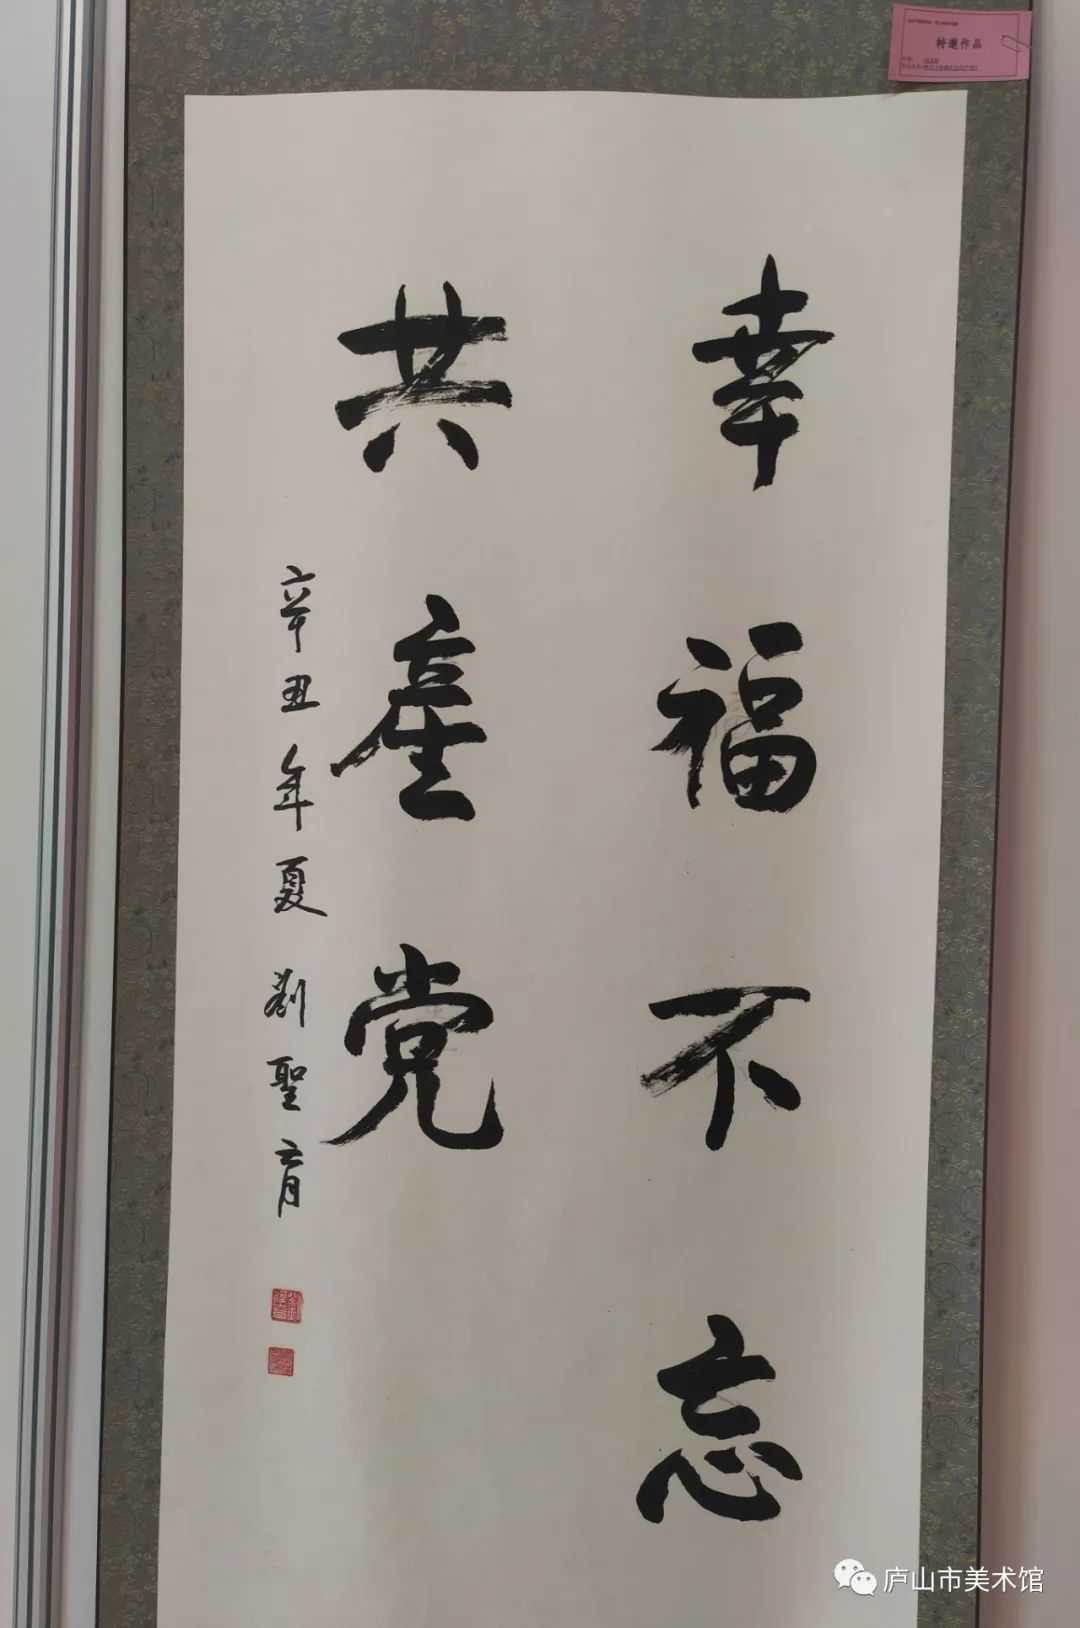 幸福不忘
共産党
辛丑年夏 劉聖育
特邀作品
庐山市美术馆